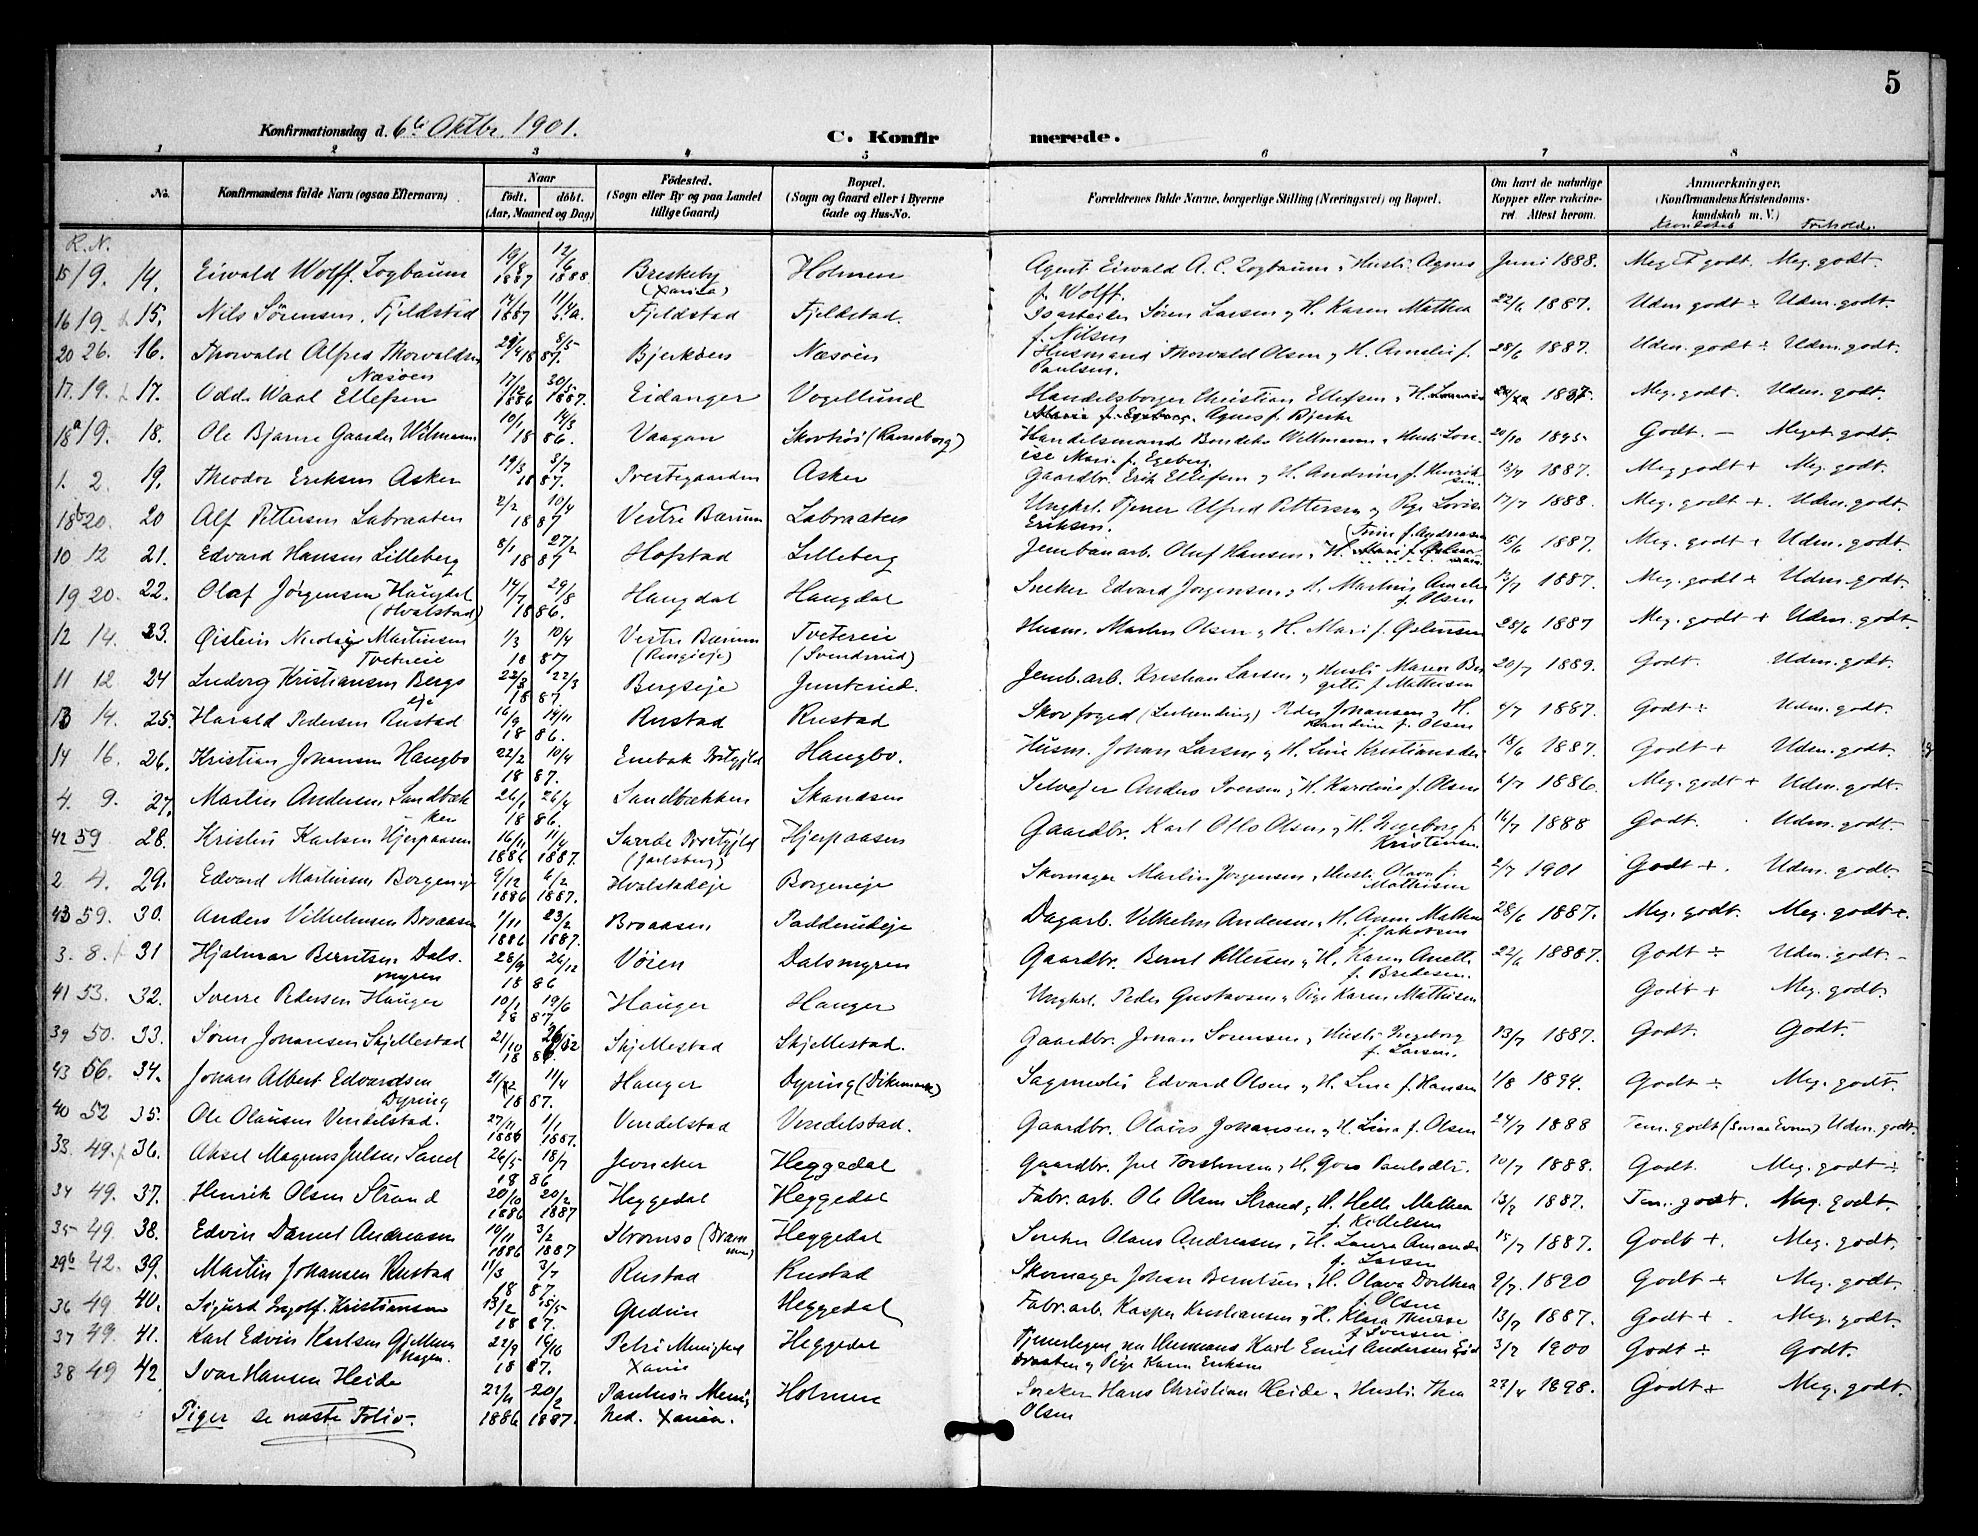 5
Konfirmationsdag d. 6te Oktbr. 1901.
C. Konfirmerede.
1 2 3 4 5 6 7 8
No. Konfirmandens fulde Navn (ogsaa Efternavn) Naar født. døbt. (Aar, Maaned og Dag) Fødested. (Sogn eller By og paa Landet tillige Gaard) Bopæl. (Sogn og Gaard eller i Byerne Gade og Hus-No. Forældrenes fulde Navne, borgerlige Stilling (Næringsvei) og Bopæl. Om havt de naturlige Kopper eller vaccineret Attest herom. Anmærkninger. (Konfirmandens Kristendomskundskab m. V.)
Kundskab Forhold.
R.N.
15 19. 14. Eiwald Wolff Zogbaum 1887 1888 Breskeby (Xania) Holmen Agent Eiwald A. C. Zogbaum, Hustr. Agnes f. Wolff. Juni 1888. Meget godt. Meg. godt.
16 19. 15. Nils Sørensen Fjeldstad 1887 Fjeldstad Fjeldstad. Isarbeider Søren Larsen og H. Karen Mathea f. Nilsen 22/6 1887. Udm. godt ÷ Udm. godt.
20 26. 16. Thorwald Alfred Thorvaldsen Næsøen 8/5 1887. Bjerkøen Næsøen Husmand Thorvald Olsen og H. Amelie f. Paulsen. 28/6 1887. Udm. godt ÷ Udm. godt.
17. 19. 17. Odd Waal Ellefsen 17/12 1886 30/5 1887. Eidanger Vogellund Handelsborger Christian Ellefsen, H. Agnes f. Bjerke 1887 Meg. godt. Udm. godt.
18a 19. 18. Ole Bjarne Gaarder Wilmann 10/1 14/3 1886. Vaagan Skovhøi (Ramsborg) Handelsmand Wellmann, Hustr. Louise Marie f. Egeberg. 20/10 1895. Godt. – Meget godt.
1. 2. 19. Theodor Eriksen Asker 19/3 3/7 1887. Prestegaarden Asker Gaardbr. Erik Ellefsen og H. Andrine f. Henriksen. 13/7 1887. Meg godt + Meg. godt.
18b 20. 20 Alf Pettersen Labraaten 2/2 10/4 1887 Vestre Bærum Labraaten Ungkrl. Tjener Alfred Pettersen og Pige Lovise Eriksen. 17/7 1888. Meg. godt + Udm. godt.
10 12 21. Edvard Hansen Lilleberg 8/1 27/2 1887 Hofstad Lilleberg Jernbanarb. Oluf Hansen, H. Trine f. Andreasen 15/6 1887. Meg. godt + Udm. godt.
19 20. 22. Olaf Jørgensen Haugdal (Hvalstad) 14/7 29/8 1886. Haugdal Haugdal Snekker Edvard Jørgensen, H. Martine Amelie f. Olsen 13/7 1887. Meg. godt + Udm. godt.
12 14. 23. Øistein Nicolay Martinsen Tvetereie 1/3 10/4 1887 Vestre Bærum (Ringieje) Tvetereie (Svendsrud) Husm. Martin Olsen og H. Mari f. 28/6 1887 Meg. godt + Udm. godt.
11 12 24 Ludvig Kristiansen Bergseje 22/3 1887. Bergseje Junterud. Jernb. arb. Kristian Larsen og Hustr. Maren Birgitte f. Mathisen 20/7 1889. Godt. Udm. godt.
13 14. 25. Harald Pedersen Rustad 16/9 14/11 1886. Rustad Rustad Skovfoged Peder Johansen og H. Randine f. Olsen 4/7 1887. Godt ÷ Udm. godt.
14 16. 26. Kristian Johansen Haugbo 22/2 10/4 1887. Enebak Prstgjld Haugbo. Husm. Johan Larsen og H. Line Kristiansdr. 18/6 1887. Godt + Udm. godt.
4. 9. 27. Martin Andersen Sandbækken 26/1 26/4 1886. Sandbækken Skandsen Selvejer Anders Iversen, H. Karoline f. Olsen 6/7 1886. Meg. godt + Udm. godt.
42 59 28. Kristen Karlsen Hjerpaasen 16/11 1886 11/4 1887. Prestgjld (Jarlsberg) Hjerpaasen Gaardbr. Karl Otto Olsen, H. Ingeborg f. Kristensen 16/7 1888 Godt. Udm. godt.
2 4. 29. Edvard Martinsen Borgeneje 9/12 1886 6/2 1887. Hvalstadeje Borgeneje Skomager Martin Jørgensen, Hustr. Olava f. Mathisen 2/7 1901 Godt +. Udm. godt.
43 59. 30. Anders Vilhelmsen Braaasen 1/11 1886 23/2 1887. Braaasen Padderudeje Dagarb. Vilhelm Andersen, H. Anne Mathea f. Jakobsen 28/6 1887. Meg. godt. Meg. godt.
3. 8. 31 Hjalmar Berntsen Dalsmyren 28/9 26/12 1886 Vøien Dalsmyren Gaardbr. Bernt Ellersen, H. Karen Anette f. Bredesen. 22/6 1887. Godt ÷ Udm. godt.
41 53. 32. Sverre Pedersen Hauger 10/1 19/6 1887. Hauger Hauger Ungkrl. Peder Gustavsen, Pige Karen Mathisen Godt + Meg. godt.
39 50. 33. Søren Johansen Skjellestad 21/10 1886. Skjellestad Skjellestad. Gaardbr. Johan Sørensen, Hustr. Ingeborg f. Larsen. 13/7 1887. Godt. Godt.
43 56. 34. Johan Albert Edvardsen Dyring 11/4 1887. Hauger Dyring (Dikemark) Sagmester Edvard Olsen, H. Lina f. Hansen 1/8 1894. Godt ÷ Meg. godt.
40 52 35. Ole Olausen Vendelstad. 27/11 1886 1/1 1887. Vendelstad Vendelstad. Gaardbr. Olaus Johansen, H. Lina f. Olsen 24/7 1888 Tem. godt (Smaa Evner) Udm. godt.
33. 49. 36. Aksel Magnus Julsen Sand 26/5 18/7 1886 Heggedal Gaardbr. Jul Torstensen, H. Paulsdtr. 20/7 1888. Godt. Meg. godt ÷
34 49. 37. Henrik Olsen Strand 20/10 1886 20/2 1887 Heggedal Heggedal Fabr. arb. Ole Olsen Strand, H. Helle Mathea f. Kittelsen 13/7 1887. Tem. godt. Meg. godt.
35 49. 38. Edvin Daniel Andreasen 10/11 1886 3/2 1887 Strømsø (Drammen) Heggedal Snekker Olaus Andreasen, H. Laura Amanda f. Larsen 15/7 1887. Godt +. Meg. godt.
29b 42. 39. Martin Johansen Rustad 11/3 3/7 1887. Rustad Rustad Skomager Johan Berntsen, H. Olava Dorthea f. Olsen 9/7. 1890 Godt + Meg. godt.
36 49. 40. Sigurd Ingolf Kristiansen 13/2 15/5 1887. Gudim Heggedal Fabr. arb. Kasper Kristiansen, H. Klara Therese f. Iversen. 13/7 1887. Godt + Meg. godt.
37 49. 41. Karl Edvin Karlsen Gjellumhagen. 22/9 16/10 1887. Petri Menighed Xania Heggedal Karl Emil Andersen, Pige Karen Eriksen 3/7 1900 Godt ÷ Godt.
38 49 42 Ivar Hansen Heide 22/11 1886 20/2 1887. Paulus Menighed. Xania. Holmen Snekker Hans Christian Heide, Hustr. Thea Olsen 22/4 1898. Godt + Meg. godt.
Piger se næste Folio.